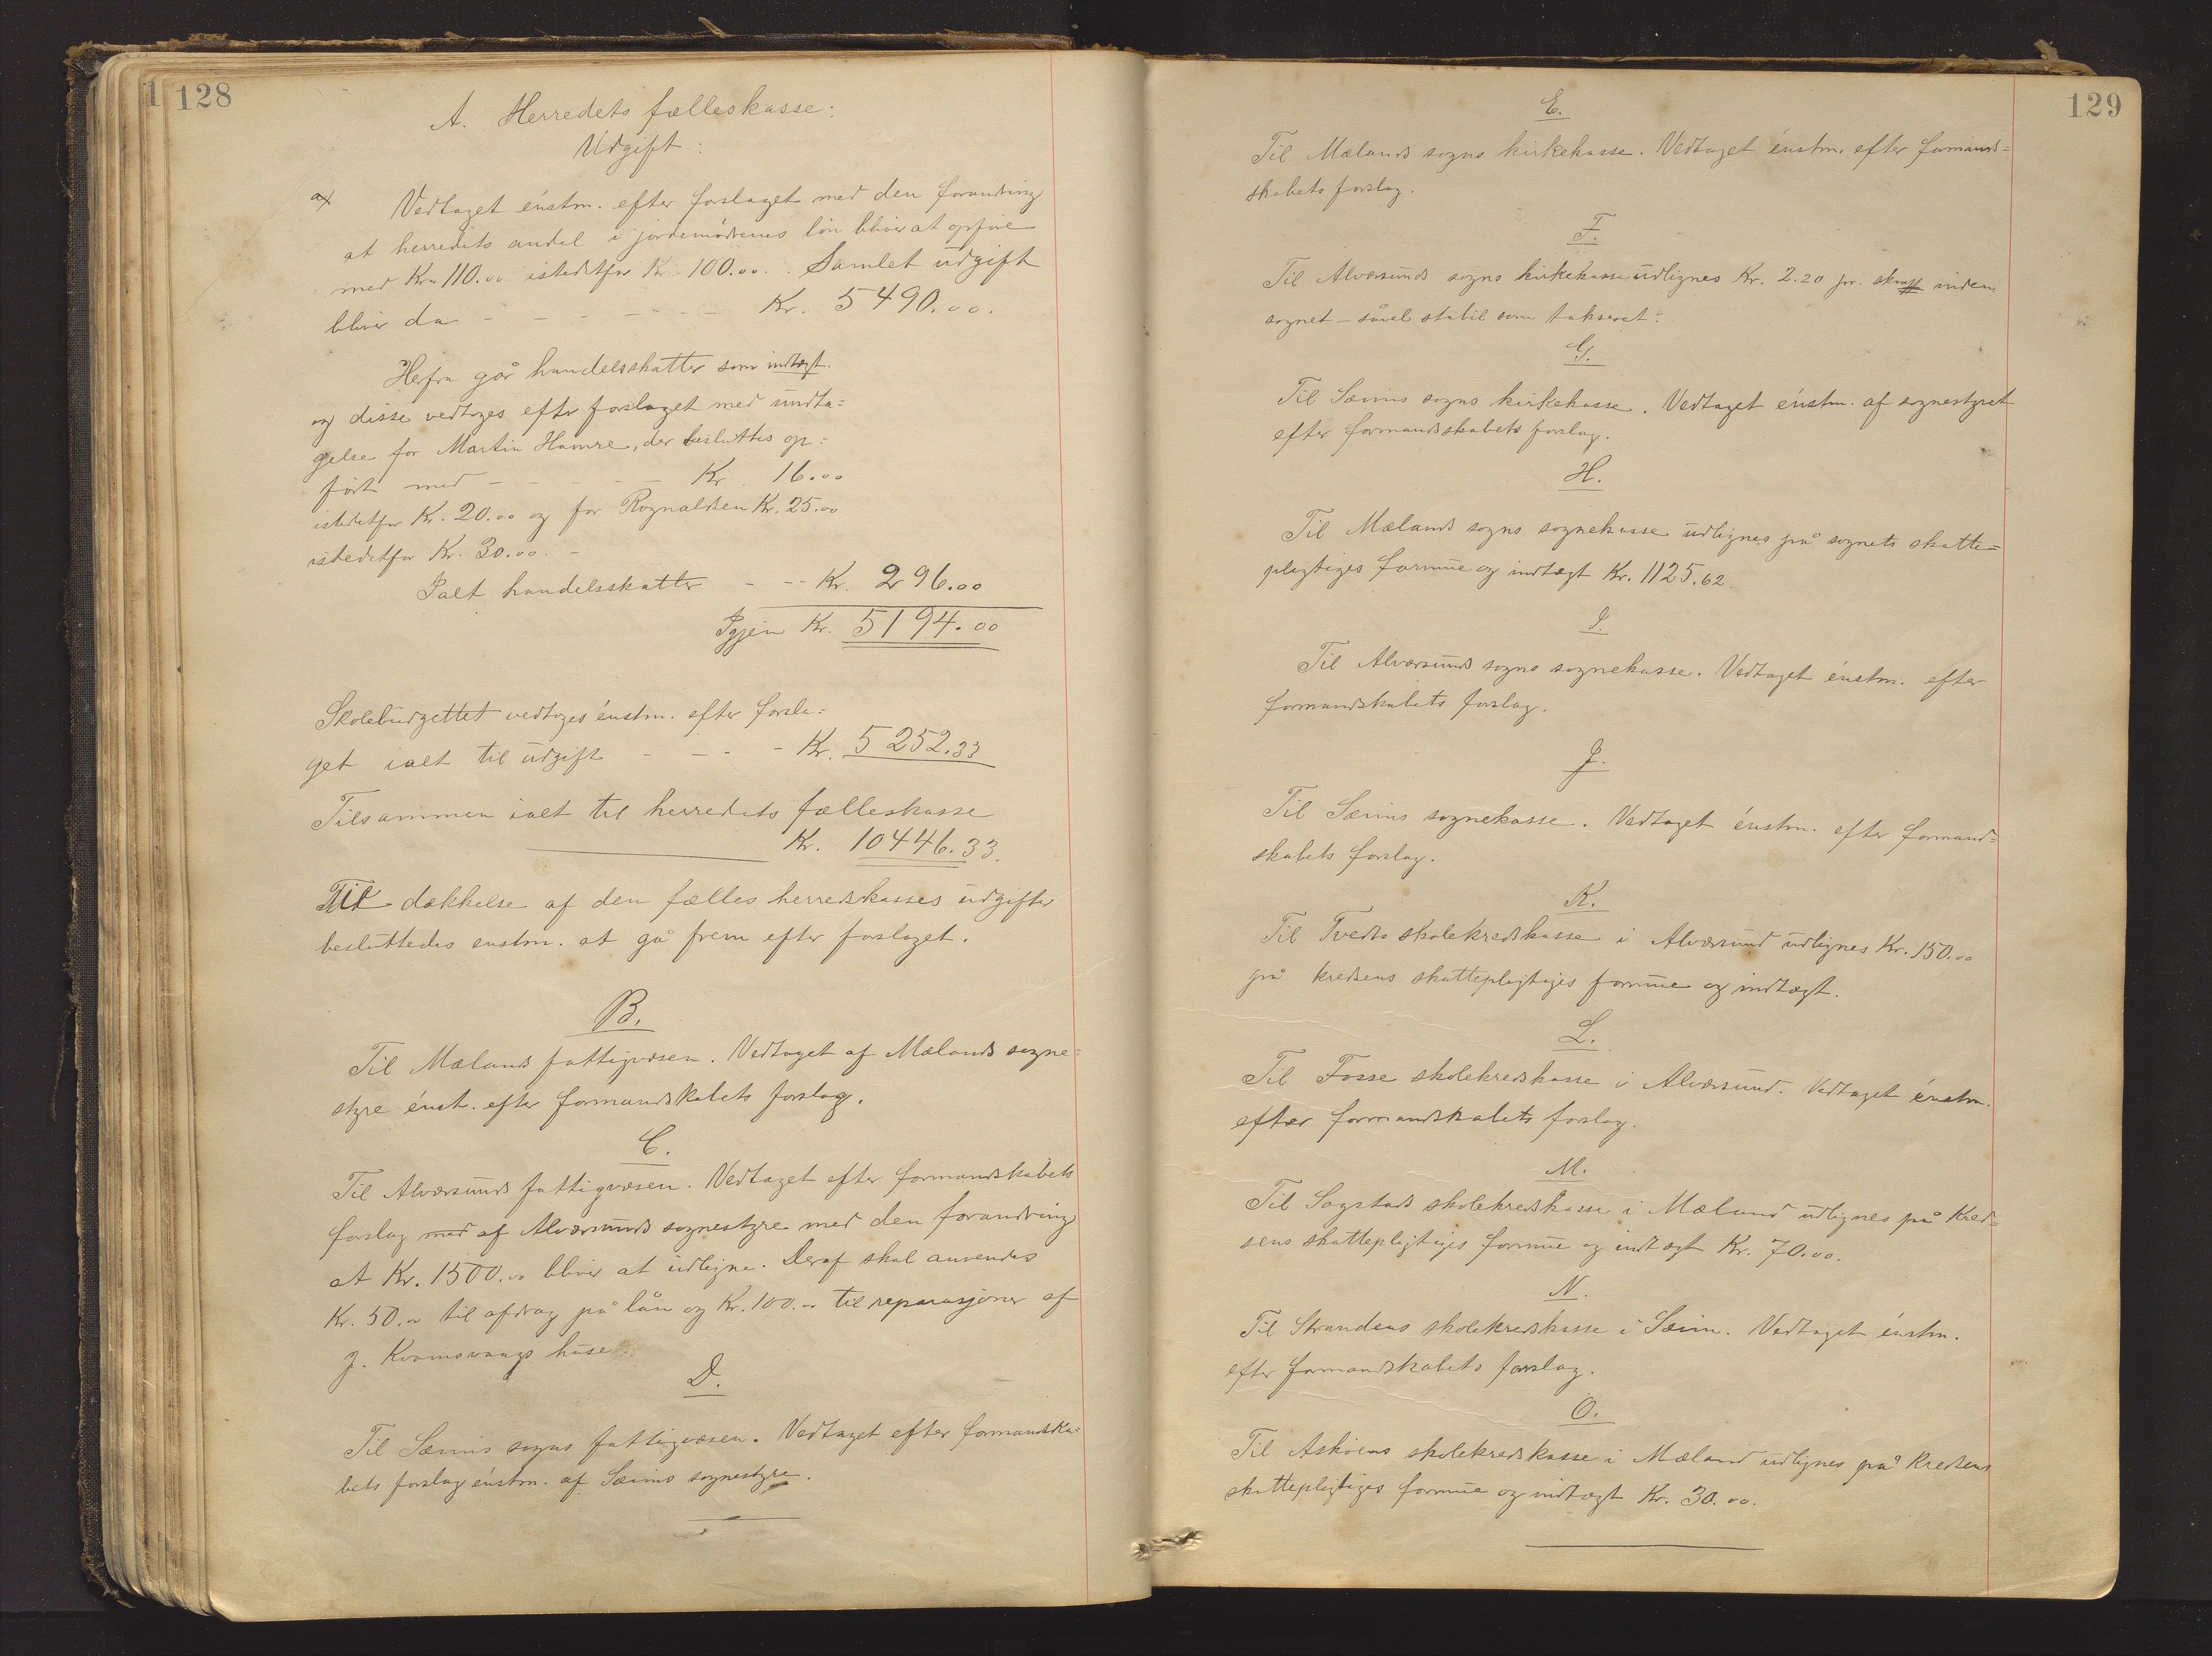 1 128
A. Herredets fælleskasse:
Udgift:
a) Vedtaget énstm. efter forslaget med den forandring
at herredets andel i jordemødrenes løn bliver at opføre
med Kr. 110.00 istedetfor Kr. 100.00. Samlet udgift
bliver da - - - - - - Kr. 5490.00.
Herfra går handelsskatter som indtægt.
og disse vedtoges efter forslaget med undta=
gelse for Martin Hamre, der besluttes op=
ført med - - - - Kr. 16.00
istedetfor Kr. 20.00 og for Rognaldsen Kr. 25.00
istedetfor Kr. 30.00. -
Ialt handelsskatter - -- Kr. 296.00
Igjen Kr. 5194.00
Skolebudgettet vedtoges énstm. efter forsla=
get ialt til udgift - - - - Kr. 5252.33
Tilsammen ialt til herredets fælleskasse
Kr. 10446.33.
Til dækkelse af den fælles herredskasses udgifter
besluttedes enstm. at gå frem efter forslaget.
B.
Til Mælands fattigvæsen. Vedtaget af Mælands sogne=
styre énst. efter formandskabets forslag.
C.
Til Alversunds fattigvæsen. Vedtaget efter formandskabets
forslag med af Alversunds sognestyre med den forandring
at Kr. 1500.00 bliver at udligne. Deraf skal anvendes
Kr. 50.00 til afdrag på lån og Kr. 100.00 til reparasjoner af
g. Kvamsvaags huse.
D.
Til Sæims sogns fattigvæsen. Vedtaget efter formandska=
bets forslag énstm. af Sæims sognestyre.
129
E.
Til Mælands sogns kirkekasse. Vedtaget énstm. efter formands=
skabets forslag.
F.
Til Alversunds sogns kirkekasse udlignes Kr. 2.20 pr. skm inden
sognet - såvel stabil som takseret.
G.
Til Sæims sogns kirkekasse. Vedtaget énstm. af sognestyret
efter formandskabets forslag.
H.
Til Mælands sogns sognekasse udlignes på sognets skatte=
pligtiges formue og indtægt Kr. 1125.62.
I.
Til Alversunds sogns sognekasse. Vedtaget énstm. efter
formandskabets forslag.
J.
Til Sæims sognekasse. Vedtaget énstm. efter formand=
skabets forslag.
K.
Til Tvedts skolekredskasse i Alversund udlignes Kr. 150.00
på kredsens skattepligtiges formue og indtægt.
L.
Til Fosse skolekredskasse i Alversund. Vedtaget énstm.
efter formandskabets forslag.
M.
Til Sagstads skolekredskasse i Mæland udlignes på Kred=
sens skattepligtiges formue og indtægt Kr. 70.00.
N.
Til Strandens skolekredskasse i Sæim. Vedtaget énstm.
efter formandskabets forslag.
O.
Til Askøens skolekredskasse i Mæland udlignes på Kredsens
skattepligtiges formue og indtægt Kr. 30.00.